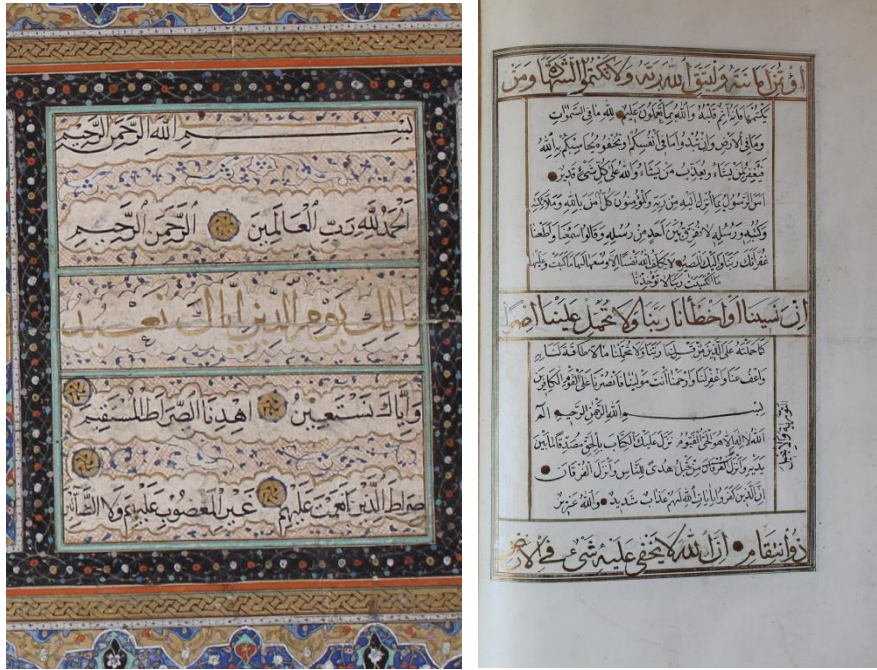 بسم الله الرحمن الرحيم
الحمد لله رب العالمين الرحمن الرحيم
مالك يوم الدين اياك نعبد
واياك نستعين اهدنا الصراط المستقيم
صراط الذين انعمت عليهم غير المغضوب عليهم ولا الضالين
امانته وليتق الله ربه ولا تكتموا الشهادة ومن
يكتمها فانه آثم قلبه والله بما تعملون عليم لله ما في السموات
وما في الارض وان تبدوا ما في انفسكم او تخفوه يحاسبكم به الله
فيغفر لمن يشاء ويعذب من يشاء والله على كل شيء قدير
آمن الرسول بما انزل اليه من ربه والمؤمنون كل آمن بالله وملائكته
وكتبه ورسله لا نفرق بين احد من رسله وقالوا سمعنا واطعنا
غفرانك ربنا واليك المصير لا يكلف الله نفسا الا وسعها لها ما كسبت وعليها
ما اكتسبت ربنا لا تؤاخذنا
ان نسينا او اخطأنا ربنا ولا تحمل علينا اصرا
كما حملته على الذين من قبلنا ربنا ولا تحملنا ما لا طاقة لنا به
واعف عنا واغفر لنا وارحمنا انت مولينا فانصرنا على القوم الكافرين
بسم الله الرحمن الرحيم الم
الله لا اله الا هو الحي القيوم نزل عليك الكتاب بالحق مصدقا لما بين
يديه وانزل من قبل هدى للناس وانزل الفرقان
التورية والانجيل
ان الذين كفروا بآيات الله لهم عذاب شديد والله عزيز
ذو انتقام ان الله لا يخفى عليه شيء في الارض